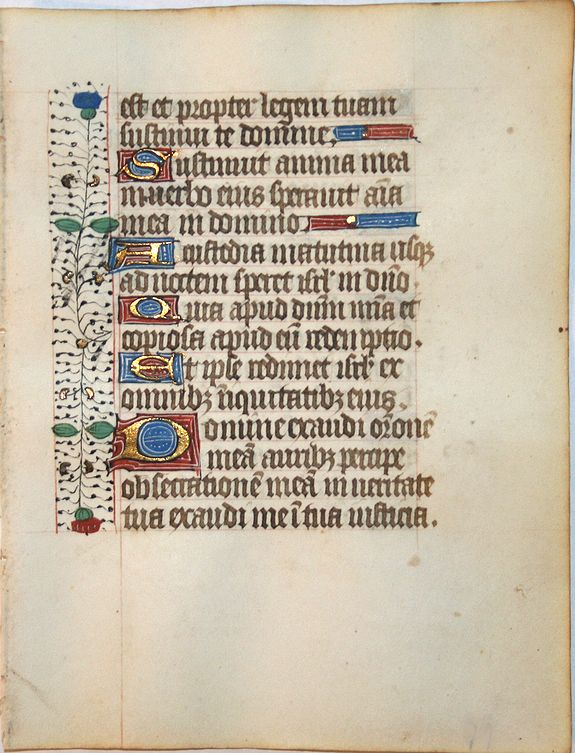 est et propter legem tuam
sustinui te domine.
Sustinuit anima mea
in verbo eius speravit aīa
mea in domino
A custodia matutina usqꝫ
ad noctem speret isrl' in dn̄o.
Quia apud dn̄m mīa et
copiosa apud eū redemptio.
Et ipse redimet isrl' ex
omnibꝫ iniquitatibꝫ eius.
Domine exaudi or̄onē
meā auribꝫ percipe
obsecrationē meā in veritate
tua exaudi me ī tua iusticia.